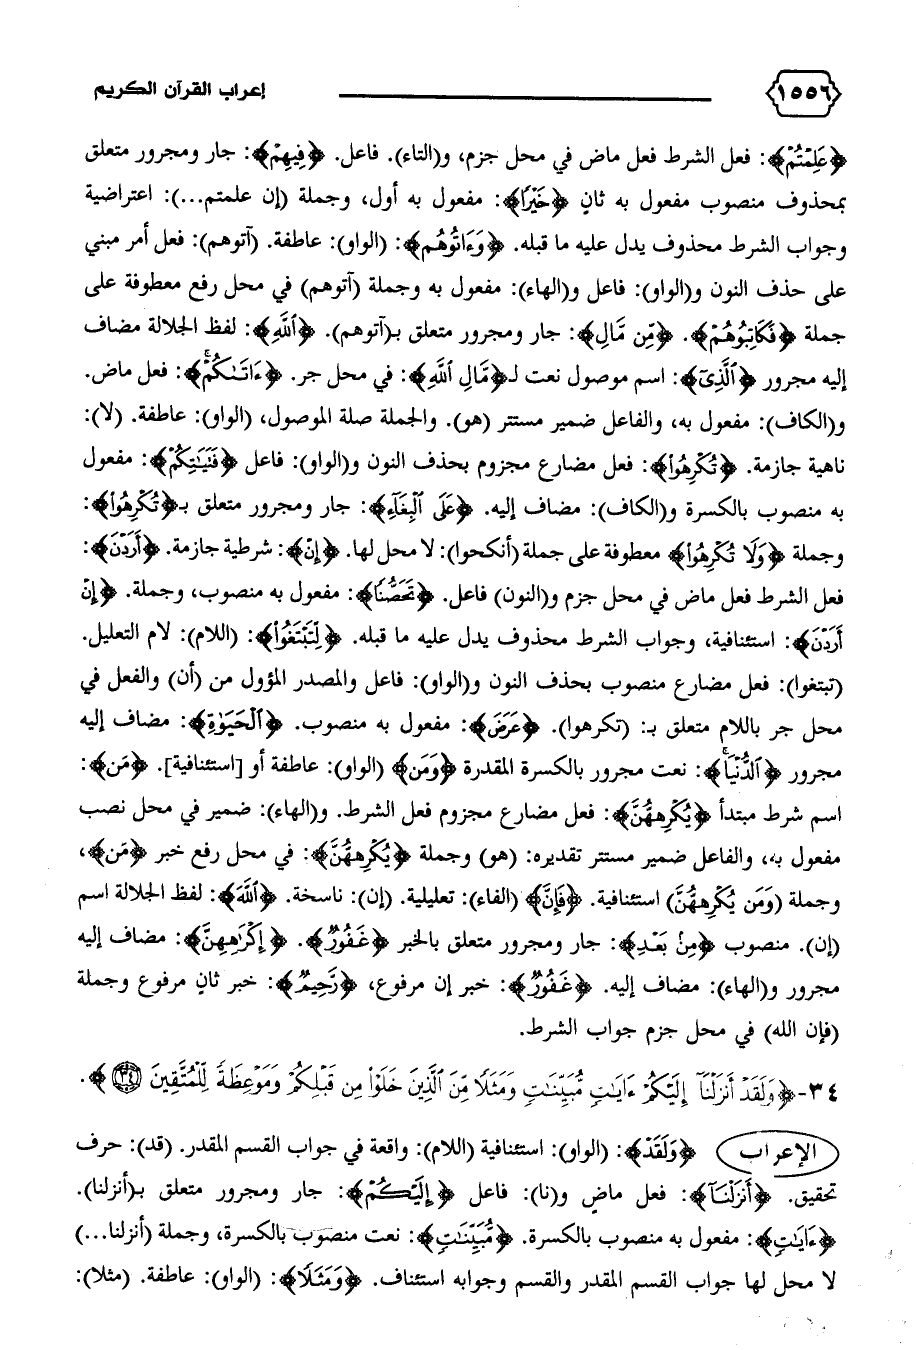 ١٥٥٦ إعراب القرآن الكريم
﴿عَلِمْتُمْ﴾: فعل الشرط فعل ماض في محل جزم، و(التاء). فاعل. ﴿فِيهِمْ﴾: جار ومجرور متعلق
بمحذوف منصوب مفعول به ثانٍ ﴿خَيْرًا﴾: مفعول به أول، وجملة (إن علمتم...): اعتراضية
وجواب الشرط محذوف يدل عليه ما قبله. ﴿وَءَاتُوهُم﴾: (الواو): عاطفة. (آتوهم): فعل أمر مبني
على حذف النون و(الواو): فاعل و(الهاء): مفعول به وجملة (آتوهم) في محل رفع معطوفة على
جملة ﴿فَكَاتِبُوهُمْ﴾. ﴿مِّن مَّالِ﴾: جار ومجرور متعلق بـ(آتوهم). ﴿ٱللَّهِ﴾: لفظ الجلالة مضاف
إليه مجرور ﴿ٱلَّذِىٓ﴾: اسم موصول نعت لـ﴿مَّالِ ٱللَّهِ﴾: في محل جر. ﴿ءَاتَىٰكُمْ ۚ﴾: فعل ماض.
و(الكاف): مفعول به، والفاعل ضمير مستتر (هو). والجملة صلة الموصول، (الواو): عاطفة. (لا):
ناهية جازمة. ﴿تُكْرِهُوا۟﴾: فعل مضارع مجزوم بحذف النون و(الواو): فاعل ﴿فَتَيَٰتِكُمْ﴾: مفعول
به منصوب بالكسرة و(الكاف): مضاف إليه. ﴿عَلَى ٱلْبِغَآءِ﴾: جار ومجرور متعلق بـ﴿تُكْرِهُوا۟﴾:
وجملة ﴿وَلَا تُكْرِهُوا۟﴾ معطوفة على جملة (أنكحوا): لا محل لها. ﴿إِنْ﴾: شرطية جازمة. ﴿أَرَدْنَ﴾:
فعل الشرط فعل ماض في محل جزم و(النون) فاعل. ﴿تَحَصُّنًا﴾: مفعول به منصوب، وجملة. ﴿إِنْ
أَرَدْنَ﴾: استئنافية، وجواب الشرط محذوف يدل عليه ما قبله. ﴿لِّتَبْتَغُوا۟﴾: (اللام): لام التعليل.
(تبتغوا): فعل مضارع منصوب بحذف النون و(الواو): فاعل والمصدر المؤول من (أن) والفعل في
محل جر باللام متعلق بـ: (تكرهوا). ﴿عَرَضَ﴾: مفعول به منصوب. ﴿ٱلْحَيَوٰةِ﴾: مضاف إليه
مجرور ﴿ٱلدُّنْيَا ۚ﴾: نعت مجرور بالكسرة المقدرة ﴿وَمَن﴾ (الواو): عاطفة أو [استئنافية]. ﴿مَن﴾:
اسم شرط مبتدأ ﴿يُكْرِههُّنَّ﴾: فعل مضارع مجزوم فعل الشرط. و(الهاء): ضمير في محل نصب
مفعول به، والفاعل ضمير مستتر تقديره: (هو) وجملة ﴿يُكْرِههُّنَّ﴾: في محل رفع خبر ﴿مَن﴾،
وجملة (وَمَن يُكْرِههُّنَّ) استئنافية. ﴿فَإِنَّ﴾ (الفاء): تعليلية. (إن): ناسخة. ﴿ٱللَّهَ﴾: لفظ الجلالة اسم
(إن). منصوب ﴿مِنۢ بَعْدِ﴾: جار ومجرور متعلق بالخبر ﴿غَفُورٌ﴾. ﴿إِكْرَٰهِهِنَّ﴾: مضاف إليه
مجرور و(الهاء): مضاف إليه. ﴿غَفُورٌ﴾: خبر إن مرفوع، ﴿رَّحِيمٌ﴾: خبر ثانٍ مرفوع وجملة
(فإن الله) في محل جزم جواب الشرط.
٣٤-﴿وَلَقَدْ أَنزَلْنَآ إِلَيْكُمْ ءَايَٰتٍ مُّبَيِّنَٰتٍ وَمَثَلًا مِّنَ ٱلَّذِينَ خَلَوْا۟ مِن قَبْلِكُمْ وَمَوْعِظَةً لِّلْمُتَّقِينَ ٣٤﴾.
الإعراب ﴿وَلَقَدْ﴾: (الواو): استئنافية (اللام): واقعة في جواب القسم المقدر. (قد): حرف
تحقيق. ﴿أَنزَلْنَآ﴾: فعل ماضٍ و(نا): فاعل ﴿إِلَيْكُمْ﴾: جار ومجرور متعلق بـ(أنزلنا).
﴿ءَايَٰتٍ﴾: مفعول به منصوب بالكسرة. ﴿مُّبَيِّنَٰتٍ﴾: نعت منصوب بالكسرة، وجملة (أنزلنا...)
لا محل لها جواب القسم المقدر والقسم وجوابه استئناف. ﴿وَمَثَلًا﴾: (الواو): عاطفة. (مثلا):